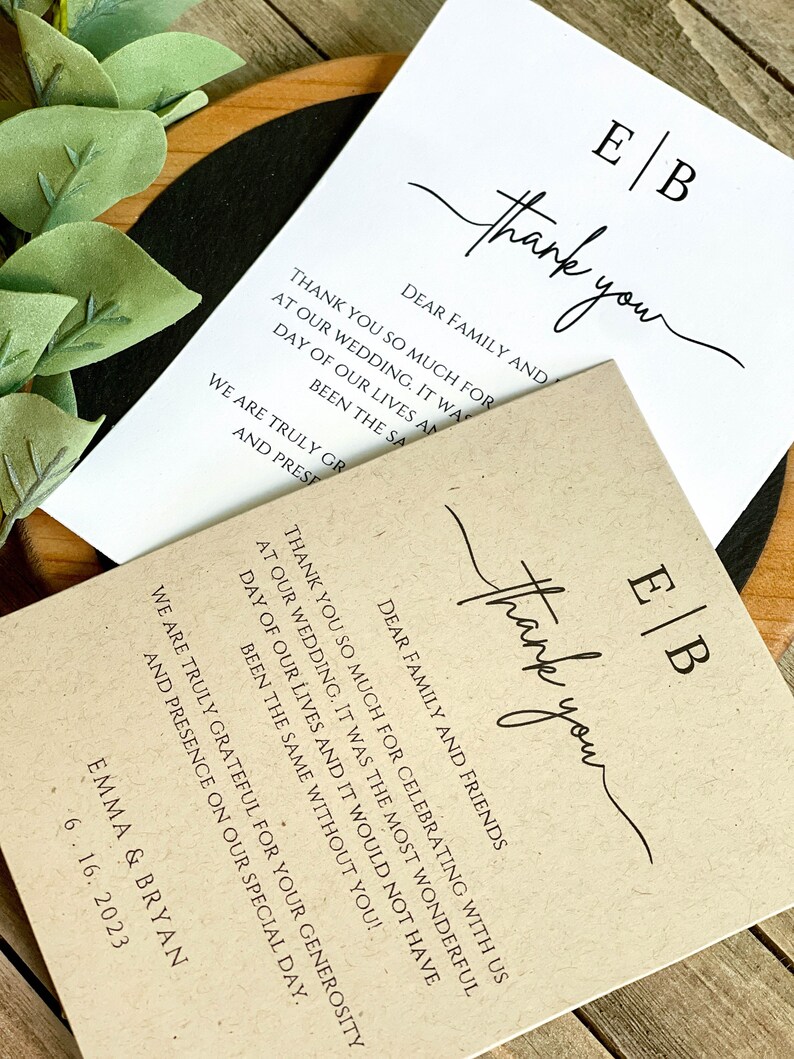 E | B
thank you
DEAR FAMILY AND
THANK YOU SO MUCH FOR
AT OUR WEDDING. IT WAS
DAY OF OUR LIVES AN
BEEN THE SA
WE ARE TRULY GR
AND PRESE
E | B
thank you
DEAR FAMILY AND FRIENDS
THANK YOU SO MUCH FOR CELEBRATING WITH US
AT OUR WEDDING. IT WAS THE MOST WONDERFUL
DAY OF OUR LIVES AND IT WOULD NOT HAVE
BEEN THE SAME WITHOUT YOU!
WE ARE TRULY GRATEFUL FOR YOUR GENEROSITY
AND PRESENCE ON OUR SPECIAL DAY.
EMMA & BRYAN
6 . 16. 2023